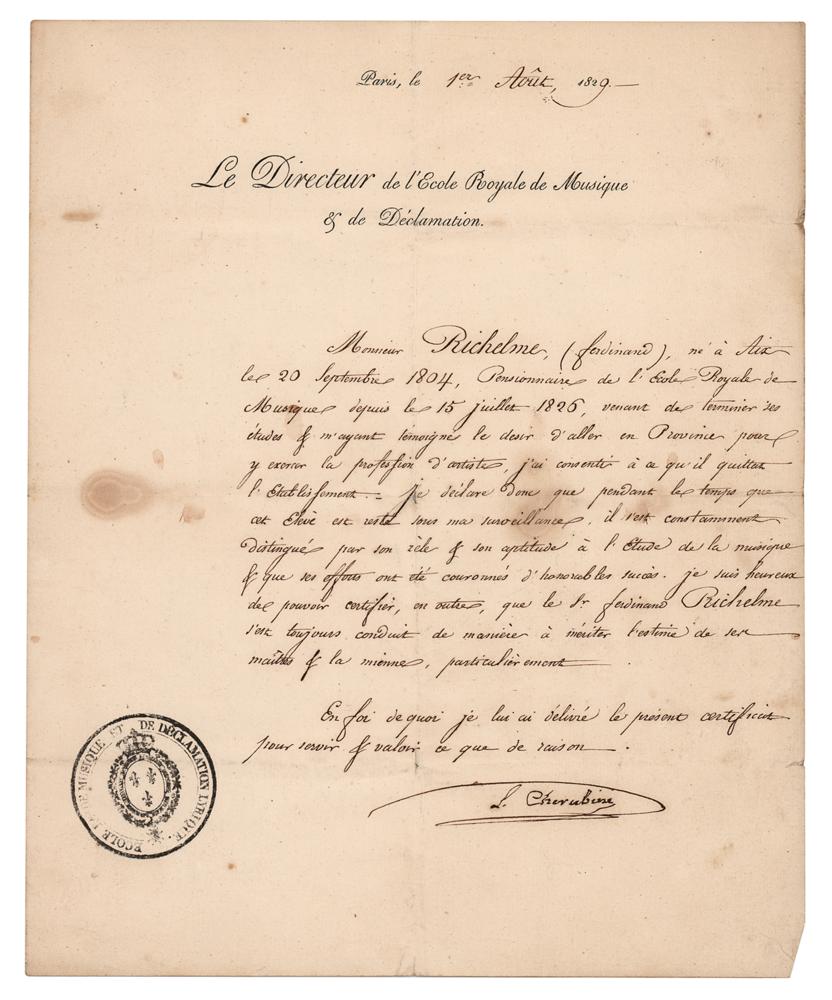 Paris, le 1er Août, 1829.
Le Directeur de l'Ecole Royale de Musique
& de Déclamation.
Monsieur Richelme, (ferdinand), né à Aix
le 20 Septembre 1804, Pensionnaire de l'Ecole Royale de
Musique depuis le 15 juillet 1826, venant de terminer ses
études & m'ayant témoigné le desir d'aller en Province pour
y exercer la profession d'artiste, j'ai consenti à ce qu'il quittat
l'Etablissement = je déclare donc que pendant le temps que
cet Elève est resté sous ma surveillance, il s'est constamment
distingué par son zèle & son aptitude à l'Etude de la musique
& que ses efforts ont été couronnés d'honorables succès. je suis heureux
de pouvoir certifier, en outre, que le Sr. ferdinand Richelme
s'est toujours conduit de manière à mériter l'estime de ses
maîtres & la mienne, particulièrement.
En foi de quoi je lui ai délivré le présent certificat
pour servir & valoir ce que de raison.
L. Cherubini
ECOLE DE MUSIQUE ET DE DECLAMATION LYRIQUE.